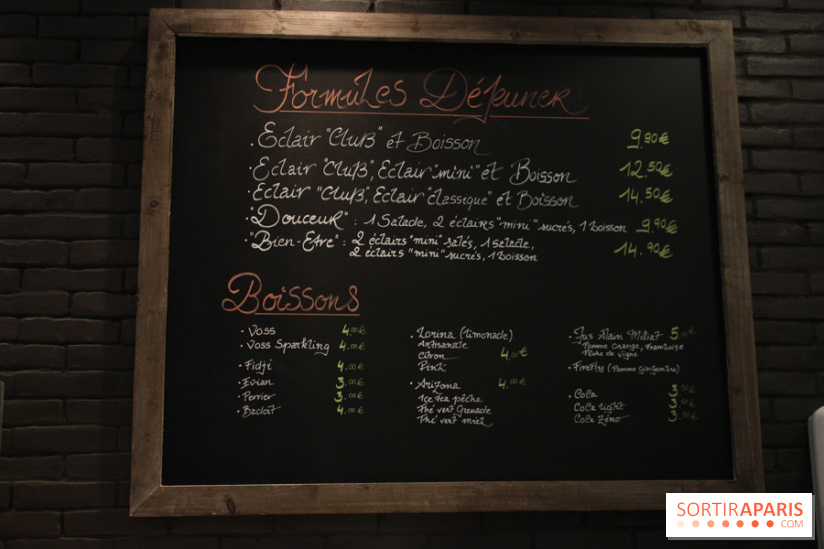 Formules Déjeuner
. Eclair "Club" et Boisson 9,90€
. Eclair "Club", Eclair "mini" et Boisson 12,50€
. Eclair "Club", Eclair "classique" et Boisson 14,50€
. "Douceur" : 1 Salade, 2 éclairs "mini" sucrés, 1 boisson 9,90€
. "Bien-Etre" : 2 éclairs "mini" salés, 1 salade, 14,90€
2 éclairs "mini" sucrés, 1 boisson
Boissons
. Voss 4,00€
. Voss Sparkling 4,00€
. Fidji 4,00€
. Evian 3,00€
. Perrier 3,00€
. Badoit 4,00€
. Lorina (limonade)
Artisanale
Citron 4,00€
Pink
. Arizona 4,00€
Ice tea pêche
Thé vert Grenade
Thé vert miel
. Jus Alain Milliat 5,00€
Pomme Orange, Framboise
Pêche de vigne
. Firefly (Pomme Gingembre)
. Coca 3,50€
Coca Light 3,50€
Coca Zéro 3,50€
SORTIRAPARIS
.COM